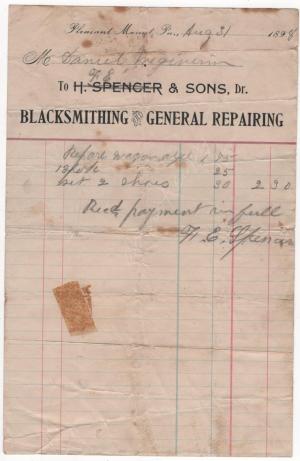 Pleasant Mount, Pa., Aug 31 1898
M Daniel
F. E.
To H. SPENCER & SONS, Dr.
BLACKSMITHING AND GENERAL REPAIRING
wagon 1 75
1 Spoke 25
Set 2 Shoes 30 2 30
Recd payment in full
F. E. Spencer